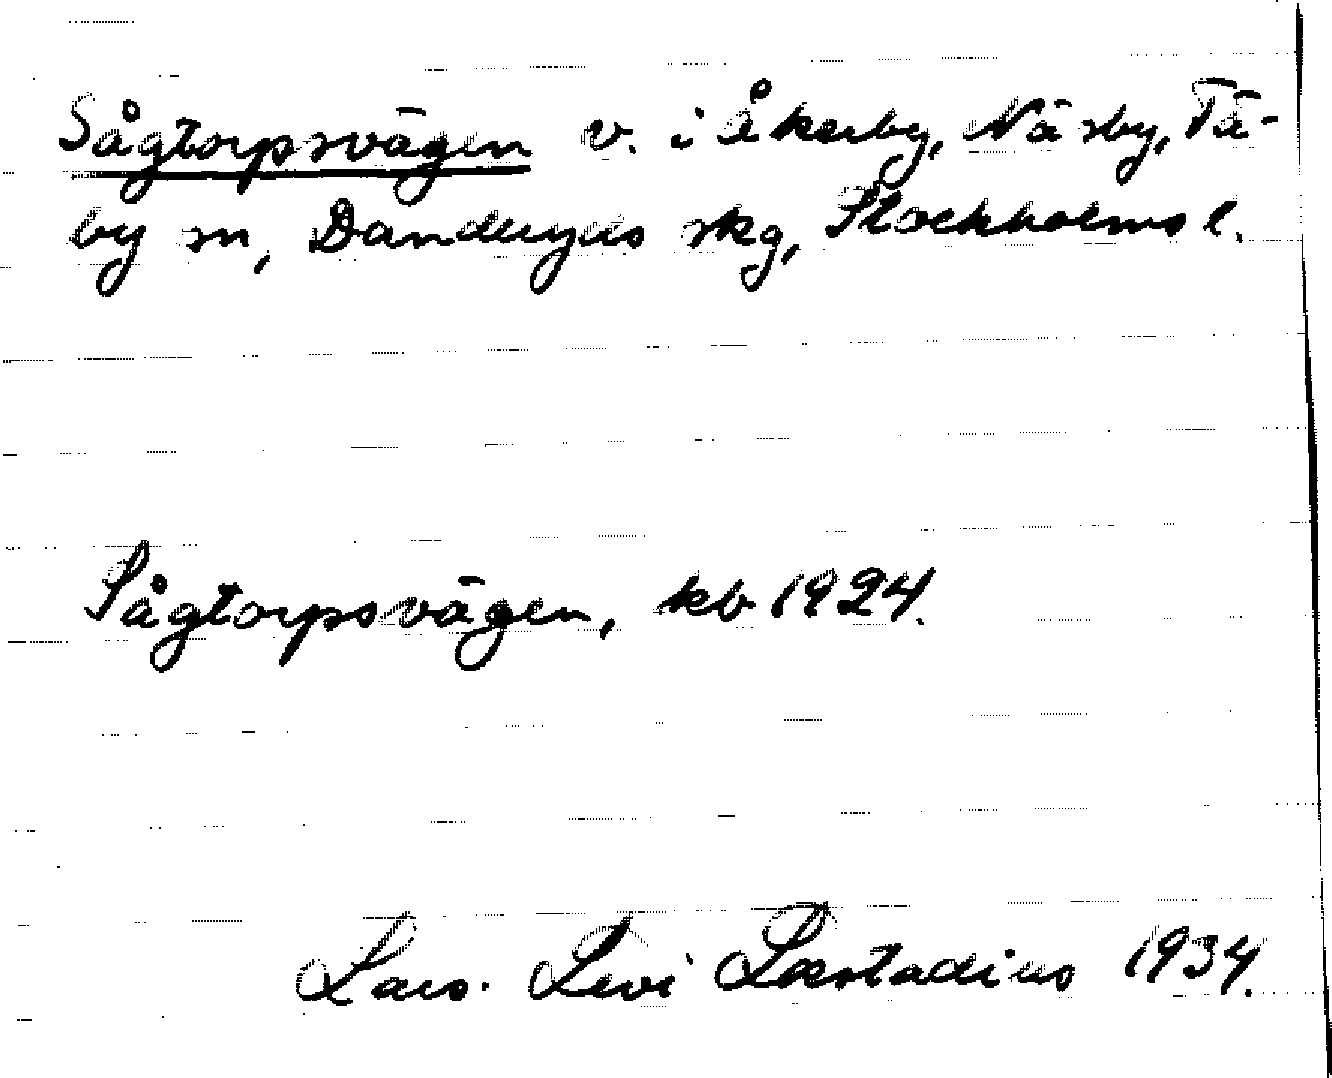 Sågtorpsvägen v. i Åkerby, Näsby, Tä-
by sn, Danderyds skg, Stockholms l.
Sågtorpsvägen, kb 1924.
Lars Levi Læstadius 1934.